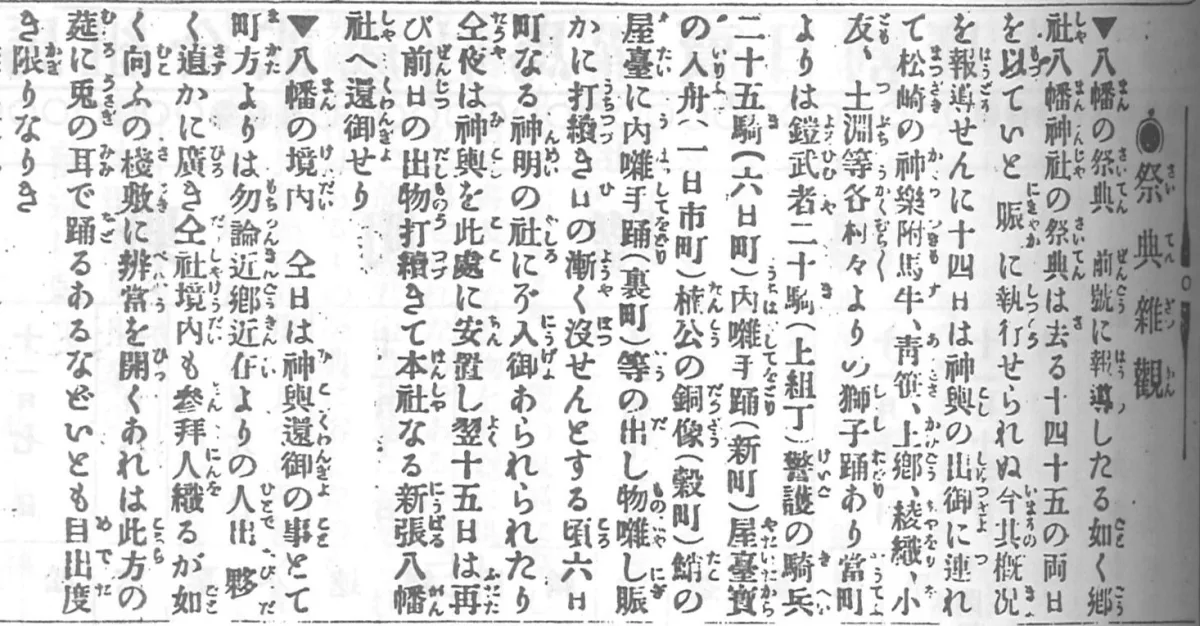 祭典雑観
▼八幡の祭典 前號に報導したる如く郷
社八幡神社の祭典は去る十四十五の両日
を以ていと賑に執行せられぬ今其概况
を報導せんに十四日は神輿の出御に連れ
て松崎の神樂附馬牛、青笹、上郷、綾織、小
友、土淵等各村々よりの獅子踊あり當町
よりは鎧武者二十騎(上組丁)警護の騎兵
二十五騎(六日町)内囃手踊(新町)屋臺寳
の入舟(一日市町)楠公の銅像(穀町)鮹の
屋臺に内囃手踊(裏町)等の出し物囃し賑
かに打續き日の漸く沒せんとする頃六日
町なる神明の社にぞ入御あられられたり
仝夜は神輿を此處に安置し翌十五日は再
び前日の出物打續きて本社なる新張八幡
社へ還御せり
▼八幡の境内 仝日は神輿還御の事とて
町方よりは勿論近郷近在よりの人出夥
く道かに廣き仝社境内も參拜人織るが如
く向ふの棧敷に辨當を開くあれは此方の
莚に兎の耳で踊るあるなどいとも目出度
き限りなりき